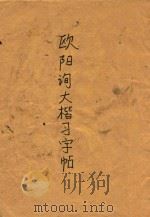 欧阳询大楷习字帖